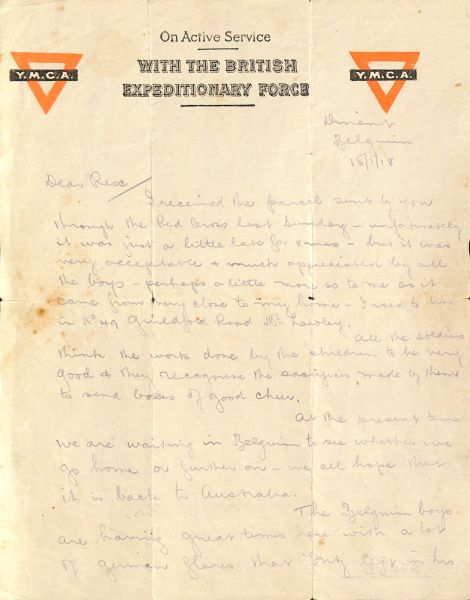 On Active Service
Y.M.C.A. Y.M.C.A.
WITH THE BRITISH
EXPEDITIONARY FORCE
Dinant
Belguim
16/1/18
Dear Rex
I received the parcel sent by you
through the Red Cross last Sunday - unfortunately
it was just a little late for xmas - but it was
very acceptable & much appreciated by all
the boys - perhaps a little more so to me as it
came from very close to my home - I used to live
in No 49 Guildford Road Mt Lawley.
All the soldiers
think the work done by the children to be very
good & they recognise the sacrifices made by them
to send boxes of good cheer.
At the present time
we are waiting in Belguim to see whether we
go home or further on - we all hope that
it is back to Australia.
The Belguim boys
are having great times here with a lot
of german flares that left in his